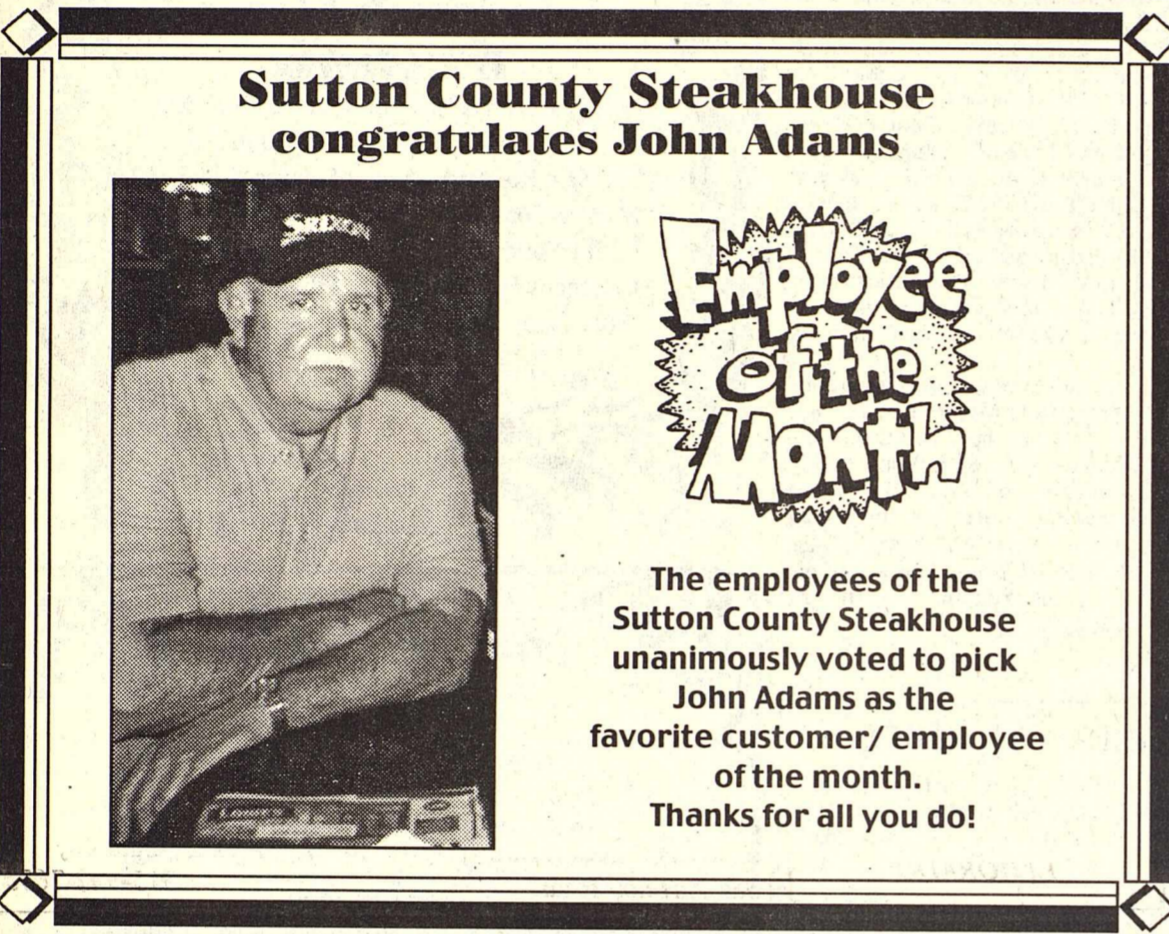 Sutton County Steakhouse
congratulates John Adams
SRIXON
Employee
of the
Month
The employees of the
Sutton County Steakhouse
unanimously voted to pick
John Adams as the
favorite customer/ employee
of the month.
Thanks for all you do!